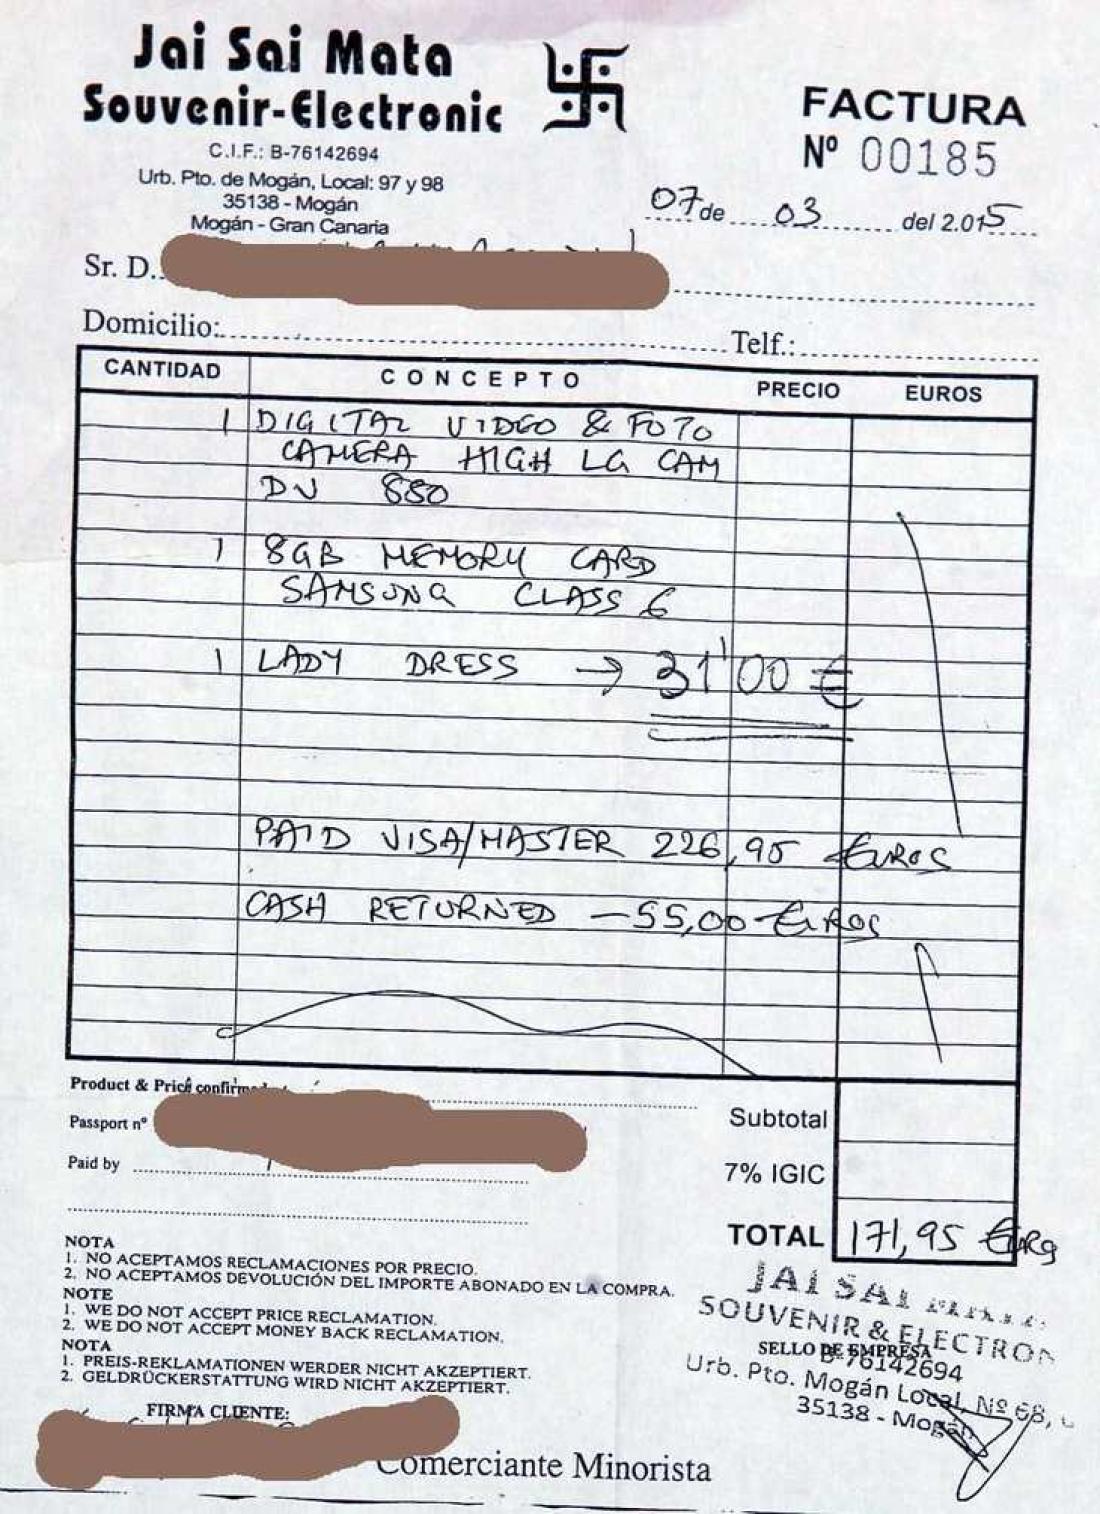 Jai Sai Mata
Souvenir-Electronic
C.I.F.: B-76142694
Urb. Pto. de Mogán, Local: 97 y 98
35138 - Mogán
Mogán - Gran Canaria
FACTURA
Nº 00185
07 de 03 del 2.015
Sr. D.
Domicilio: Telf.:
CANTIDAD CONCEPTO PRECIO EUROS
1 DIGITAL VIDEO & FOTO
CAMERA HIGH LG CAM
DV 880
1 8GB MEMORY CARD
SAMSUNG CLASS 6
1 LADY DRESS → 31'00 €
PAID VISA/MASTER 226,95 EUROS
CASH RETURNED -55,00 EUROS
Product & Price
Passport nº
Paid by
Subtotal
7% IGIC
TOTAL 171,95
NOTA
1. NO ACEPTAMOS RECLAMACIONES POR PRECIO.
2. NO ACEPTAMOS DEVOLUCIÓN DEL IMPORTE ABONADO EN LA COMPRA.
NOTE
1. WE DO NOT ACCEPT PRICE RECLAMATION.
2. WE DO NOT ACCEPT MONEY BACK RECLAMATION.
NOTA
1. PREIS-REKLAMATIONEN WERDER NICHT AKZEPTIERT.
2. GELDRÜCKERSTATTUNG WIRD NICHT AKZEPTIERT.
JAI SAI
SOUVENIR & ELECTRON
SELLO DE EMPRESA
B-76142694
Urb. Pto. Mogán Local Nº 68,
35138 - Mogán
FIRMA CLIENTE:
Comerciante Minorista